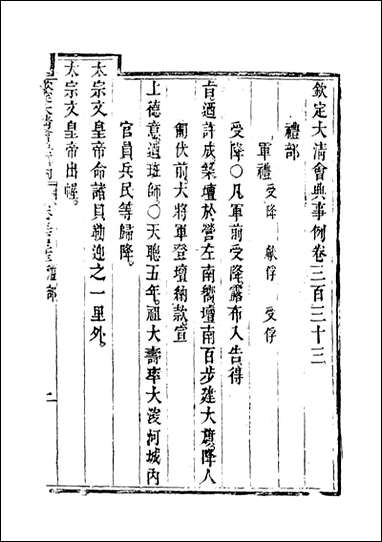 欽定大清會典事例卷三百三十三
禮部
軍禮 受降 獻俘 受俘
受降○凡軍前受降露布入告得
旨迺許成築壇於營左南嚮壇南百步建大旗降人
匍伏前大將軍登壇納款宣
上德意迺班師○天聰五年祖大壽率大淩河城內
官員兵民等歸降
太宗文皇帝命諸貝勒迎之一里外
太宗文皇帝出幄